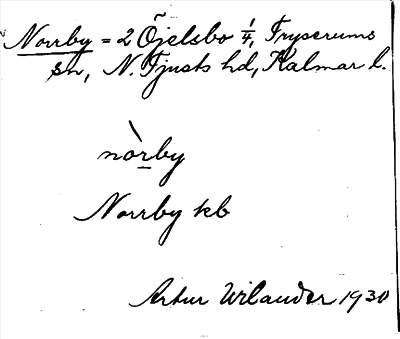 Norrby = 2 Öjelsbo 1/4, Fryserums
sn, N. Tjusts hd, Kalmar l.
nòrby
Norrby kb
Artur Wilander 1930